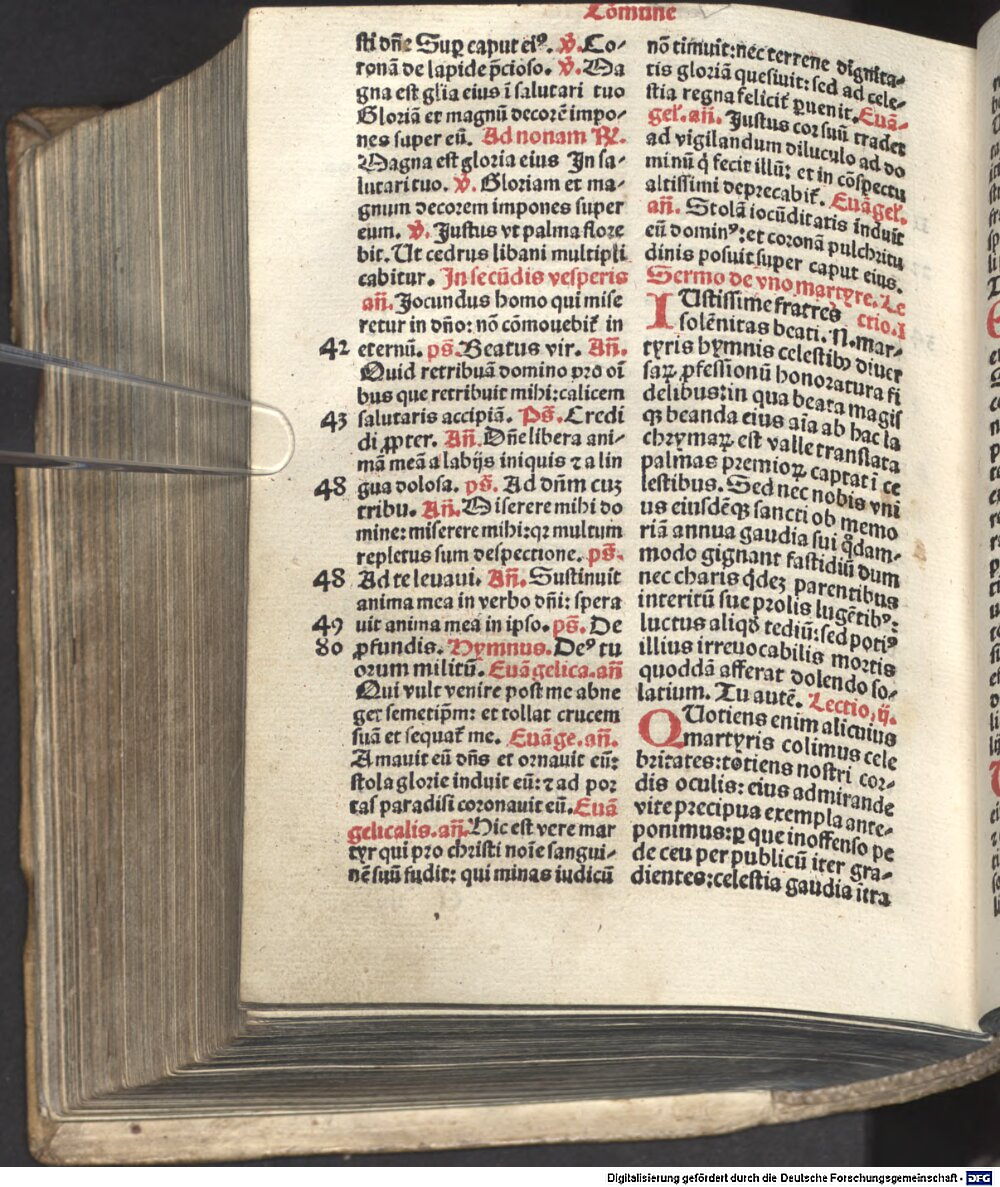 Cōmune
sti dn̄e Suꝑ caput eiꝰ. ℣. Co-
ronā de lapide p̄cioso. ℣. Ma
gna est gl̄ia eius ī salutari tuo
Gloriā et magnū decorē impo-
nes super eū. Ad nonam ℞.
Magna est gloria eius In sa-
lutari tuo. ℣. Gloriam et ma-
gnum decorem impones super
eum. ℣. Justus vt palma flore
bit. Ut cedrus libani multipli
cabitur. In secūdis vesperis
an̄. Jocundus homo qui mise
retur in dn̄o: nō cōmouebit̄ in
42 eternū. ps̄. Beatus vir. An̄.
Quid retribuā domino pro oī
bus que retribuit mihi: calicem
43 salutaris accipiā. Ps̄. Credi
di ꝓpter. An̄. Dn̄e libera ani-
mā meā a labijs iniquis ⁊ a lin
48 gua dolosa. ps̄. Ad dn̄m cuꝫ
tribu. An̄. Miserere mihi do
mine: miserere mihi: qꝛ multum
repletus sum despectione. ps̄.
48 Ad te leuaui. An̄. Sustinuit
anima mea in verbo dn̄i: spera
49 uit anima mea in ipso. ps̄. De
80 ꝓfundis. Hymnus. Deꝰ tu
orum militū. Euāgelica. an̄
Qui vult venire post me abne
get semetip̄m: et tollat crucem
suā et sequat̄ me. Euāge. an̄.
Amauit eū dn̄s et ornauit eū:
stola glorie induit eū: ⁊ ad por
tas paradisi coronauit eū. Euā
gelicalis. an̄. Hic est vere mar
tyr qui pro christi noīe sangui-
nē suū fudit: qui minas iudicū
nō timuit: nec terrene dignita-
tis gloriā quesiuit: sed ad cele-
stia regna felicit̄ ꝑuenit. Euā-
gel̄. an̄. Justus cor suū tradet
ad vigilandum diluculo ad do
minū q̄ fecit illū: et in cōspectu
altissimi deprecabit̄. Euāgel̄.
an̄. Stolā iocūditatis induit
eū dominꝰ: et coronā pulchritu
dinis posuit super caput eius.
Sermo de vno martyre. Le
IUstissime fratres ctio. I
solēnitas beati. N. mar-
tyris hymnis celestibꝰ diuer
saꝝ ꝓfessionū honoratura fi
delibus: in qua beata magis
qꝫ beanda eius aīa ab hac la
chrymaꝝ est valle translata
palmas premioꝝ captat ī ce
lestibus. Sed nec nobis vni
us eiusdēqꝫ sancti ob memo
riā annua gaudia sui q̄dam-
modo gignant fastidiū dum
nec charis q̄deꝫ parentibus
interitū sue prolis lugētibꝰ:
luctus aliqd̄ tediū: sed potiꝰ
illius irreuocabilis mortis
quoddā afferat dolendo so-
latium. Tu autē. Lectio. ij.
QUotiens enim alicuius
martyris colimus cele
britates: totiens nostri cor-
dis oculis: eius admirande
vite precipua exempla ante-
ponimus: ꝑ que inoffenso pe
de ceu per publicū iter gra-
dientes: celestia gaudia ītra
Digitalisierung gefördert durch die Deutsche Forschungsgemeinschaft - DFG